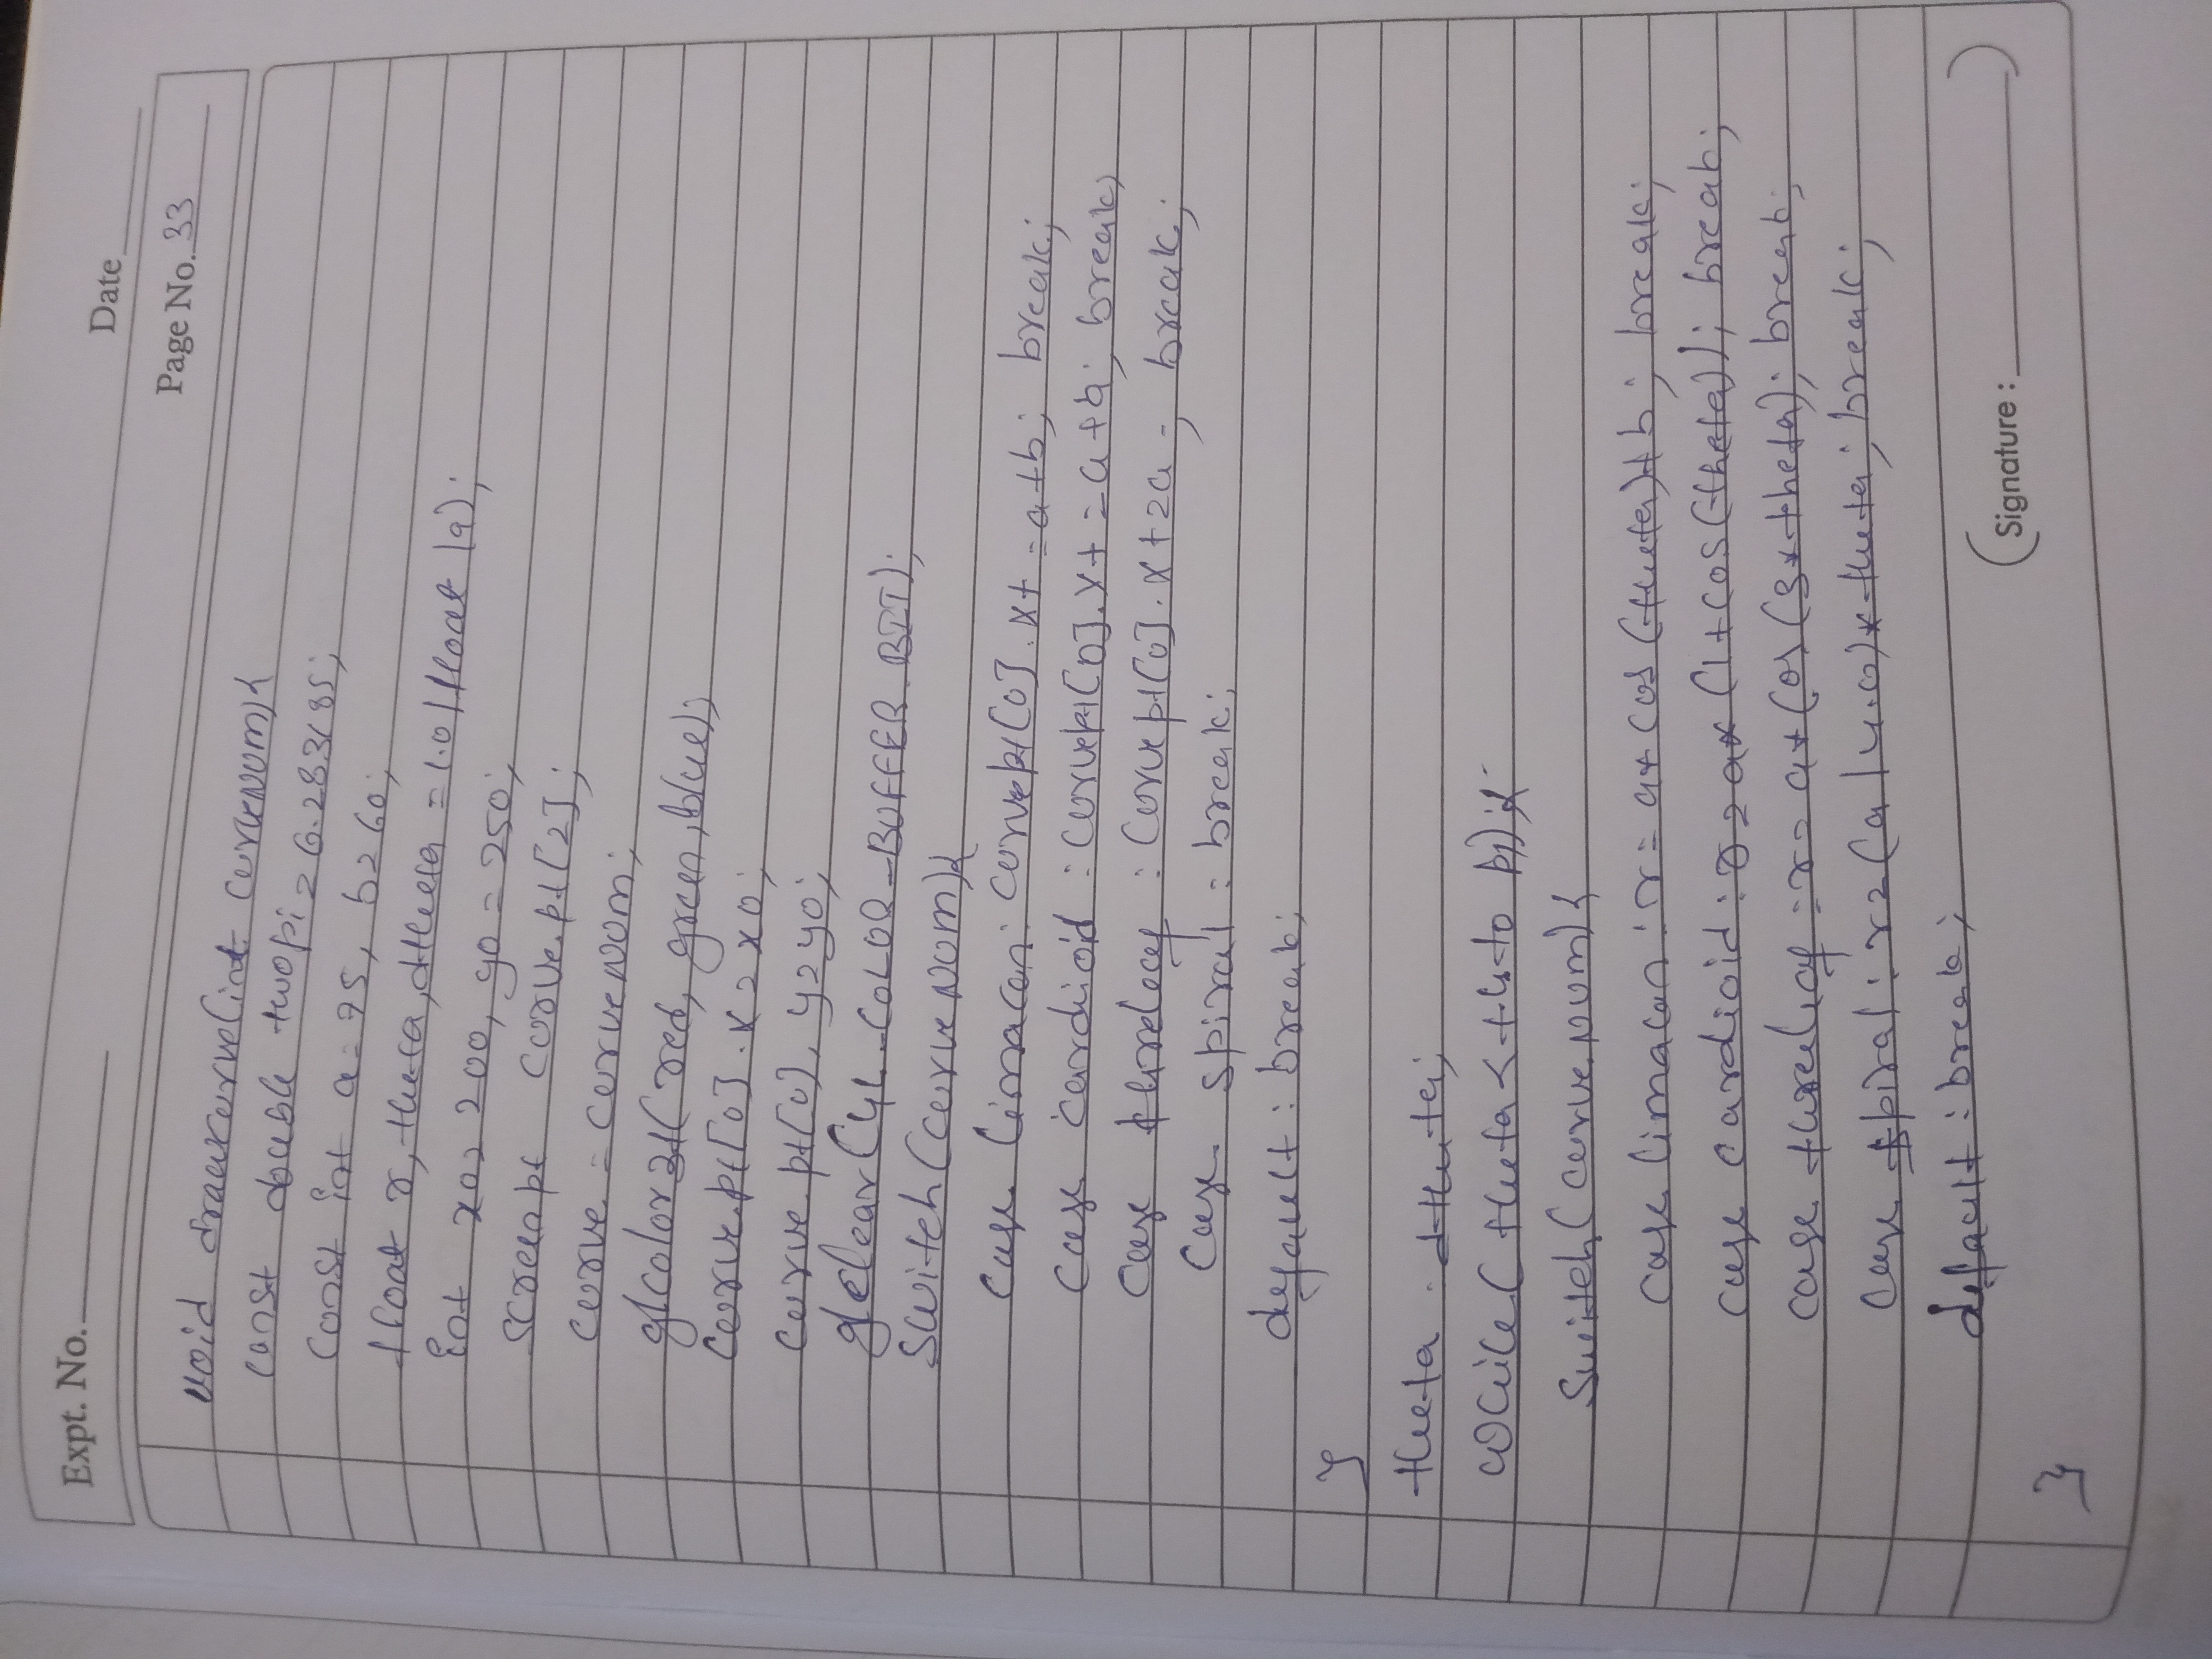 Expt. No.
Date
Page No. 33
void drawcurve(int curveNum){
const double twopi = 6.283185;
const int a = 75, b = 60;
float r, theta, dtheta = 1.0/float (a);
int x0 = 200, y0 = 250;
screenpt curvept[2];
curve = curveNum;
glcolor3f(red, green, blue);
curvept[0].x = x0;
curvept[0].y = y0;
glclear(GL_COLOR_BUFFER_BIT);
Switch(curveNum){
case limacon: curvept[0].x+ = a+b; break;
case cardioid : curvept[0].x+ = a+a; break;
case threleaf : curvept[0].x+2a - break;
case spiral : break;
default : break;
}
theta = dtheta;
while(theta < twopi){
Switch(curveNum){
case limacon : r = a* cos (theta)+b; break;
case cardioid : r = a* (1+cos(theta)); break;
case threeleaf : r = a* cos(3*theta); break;
case spiral : r = (a/4.0)*theta; break;
default : break;
}
(Signature : )